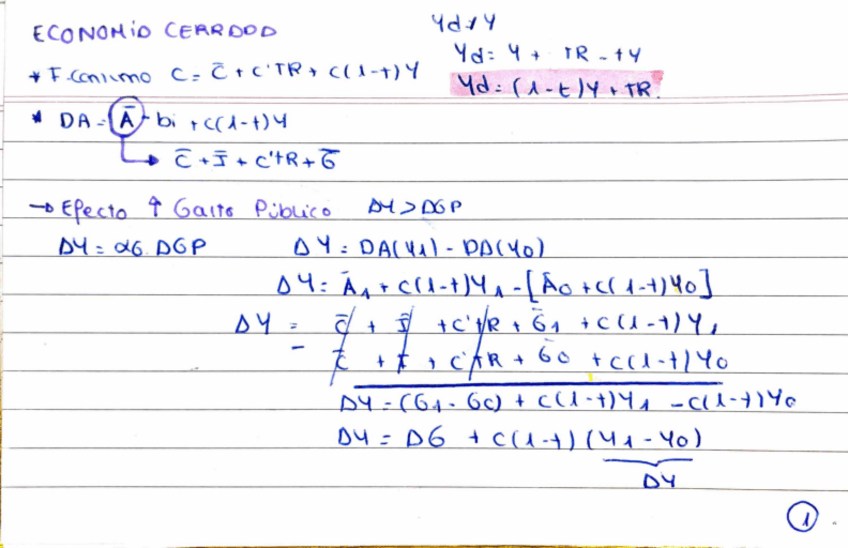 ECONOMIO CERRDOD
Yd≠Y
Yd = Y + TR - tY
* F. Consumo C = C̄ + C'TR + C(1-t)Y
Yd = (1-t)Y + TR
* DA = Ā - bi + C(1-t)Y
→ C̄ + Ī + C'TR + Ḡ
→ Efecto ↑ Gasto Público ΔY > DGP
ΔY = αG. DGP ΔY = DA(Y1) - DA(Y0)
ΔY = Ā1 + C(1-t)Y1 - [Ā0 + C(1-t)Y0]
ΔY = C̄ + Ī + C'TR + Ḡ1 + C(1-t)Y1
- C̄ + Ī + C'TR + Ḡ0 + C(1-t)Y0
ΔY = (G1 - G0) + C(1-t)Y1 - C(1-t)Y0
ΔY = DG + C(1-t)(Y1 - Y0)
ΔY
1